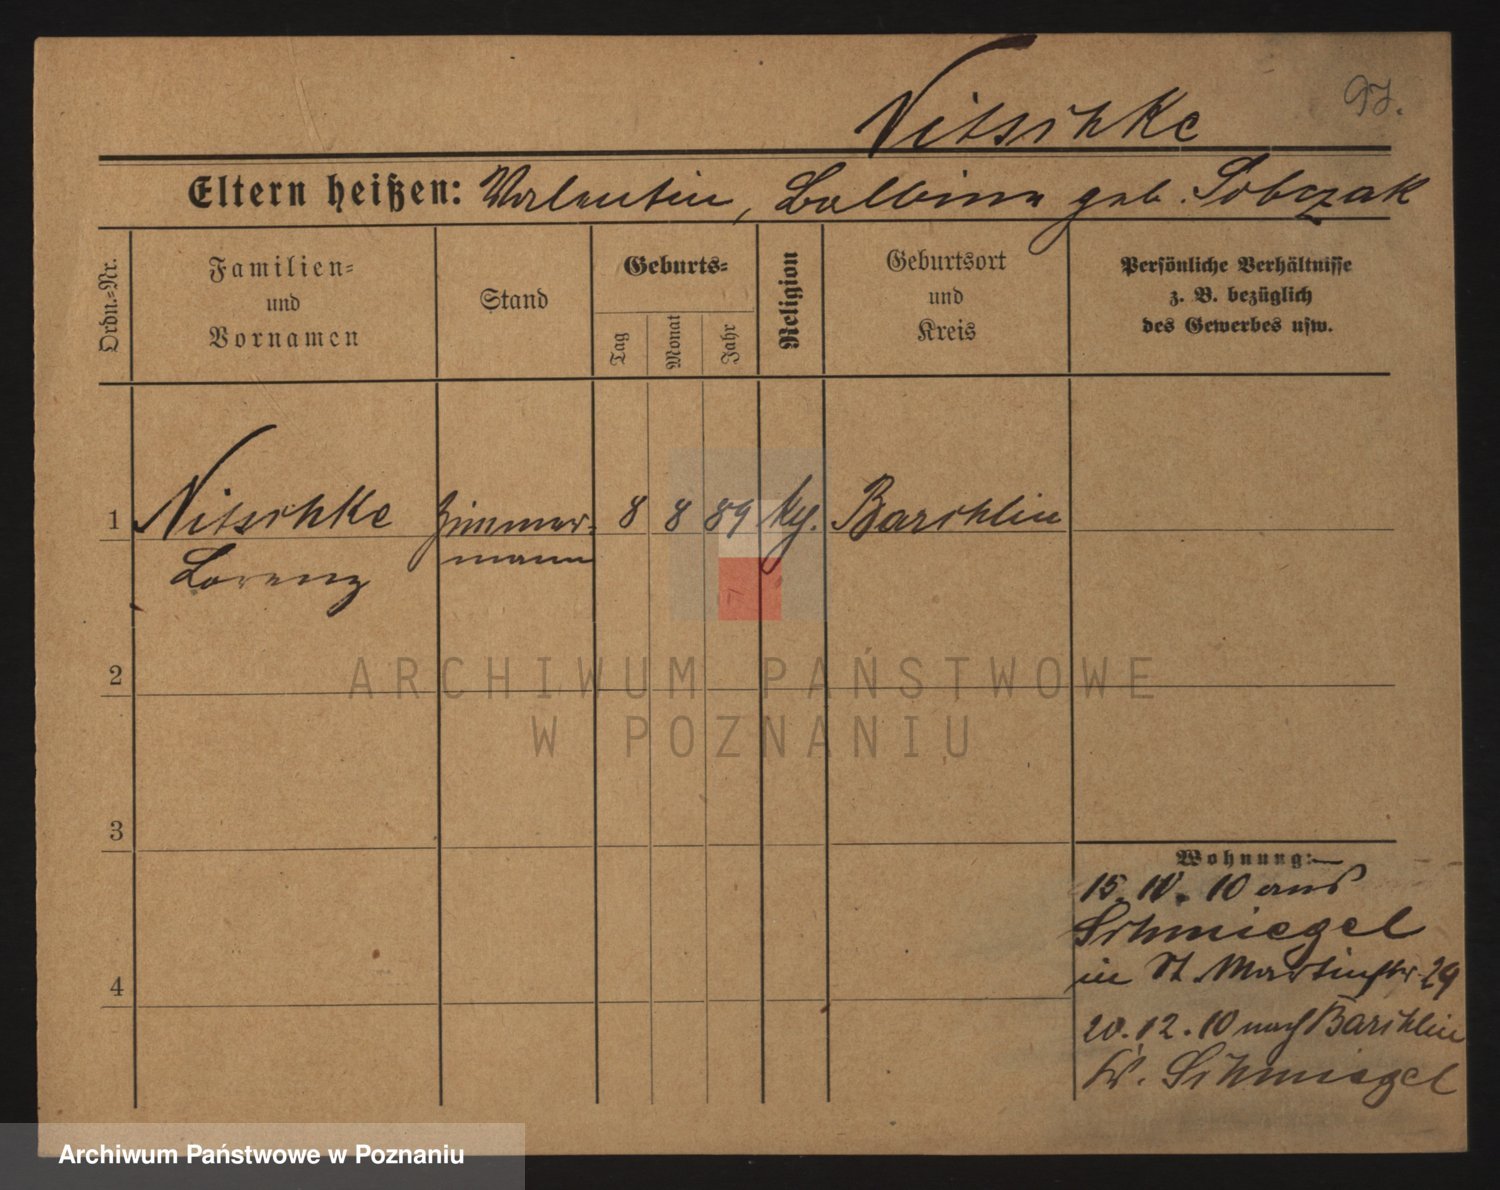 97.
Nitschke
Eltern heißen: Valentin, Balbina geb. Sobczak
Ordn.=Nr.
Familien=
und
Vornamen
Stand
Geburts=
Tag
Monat
Jahr
Religion
Geburtsort
und
Kreis
Persönliche Verhältnisse
z. B. bezüglich
des Gewerbes usw.
1 Nitschke Zimmer= 8 8 89 Barchlin
Lorenz mann
2
ARCHIWUM PAŃSTWOWE
W POZNANIU
3
4
Wohnung:
15. 10. 10 aus
Schmiegel
in St. Martinstr. 29
20. 12. 10 nach Barchlin
Kr. Schmiegel
Archiwum Państwowe w Poznaniu